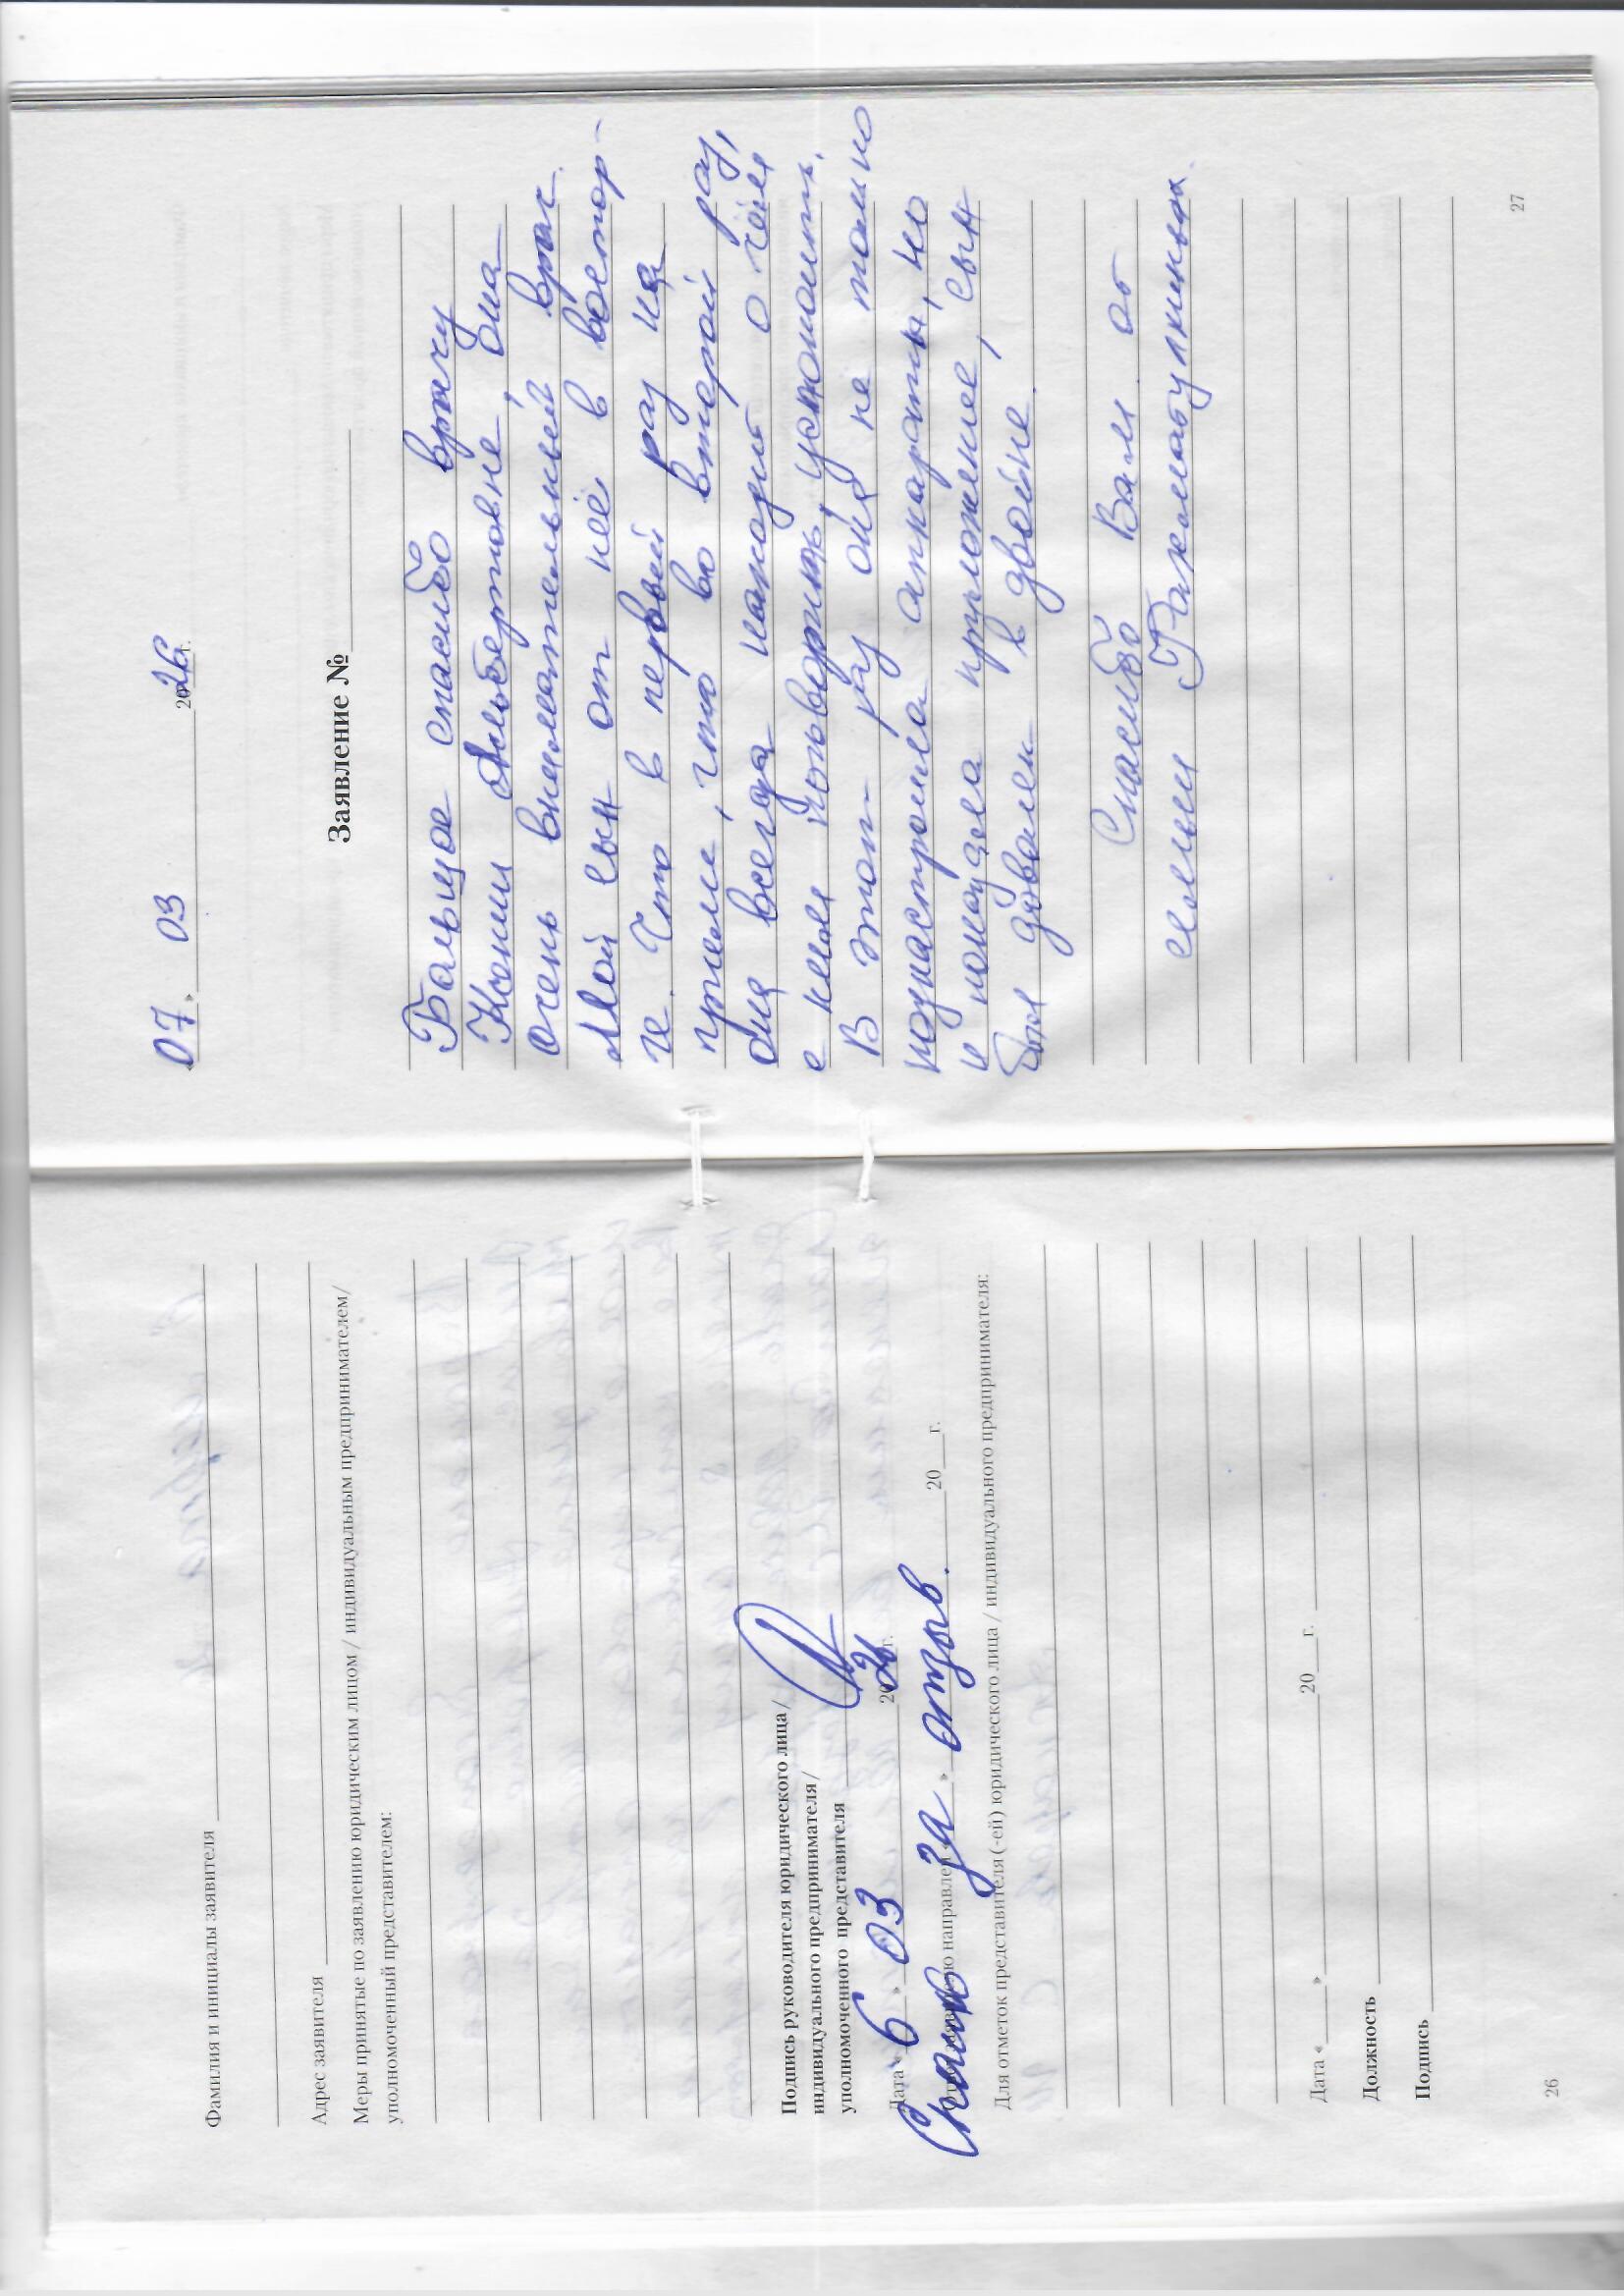 Фамилия и инициалы заявителя
Адрес заявителя
Меры принятые по заявлению юридическим лицом / индивидуальным предпринимателем/
уполномоченный представителем:
Подпись руководителя юридического лица /
индивидуального предпринимателя/
уполномоченного представителя
Дата « 6 » 03 2026 г.
направлен « » 20 г.
Спасибо за отзыв.
Для отметок представителя (-ей) юридического лица / индивидуального предпринимателя:
Дата « » 20 г.
Должность
Подпись
26
07 » 03 2026 г.
Заявление №
Большое спасибо врачу
Ксении Альбертовне, она
очень внимательный врач.
Мой сын от неё в востор-
ге. Что в первый раз на
приеме, что во второй раз,
она всегда находит о чём
с ним поговорить, успокоить.
В этот раз она не только
поднастроила аппараты, но
и показала приложение, сын
был доволен в двойне.
Спасибо Вам от
семьи
27